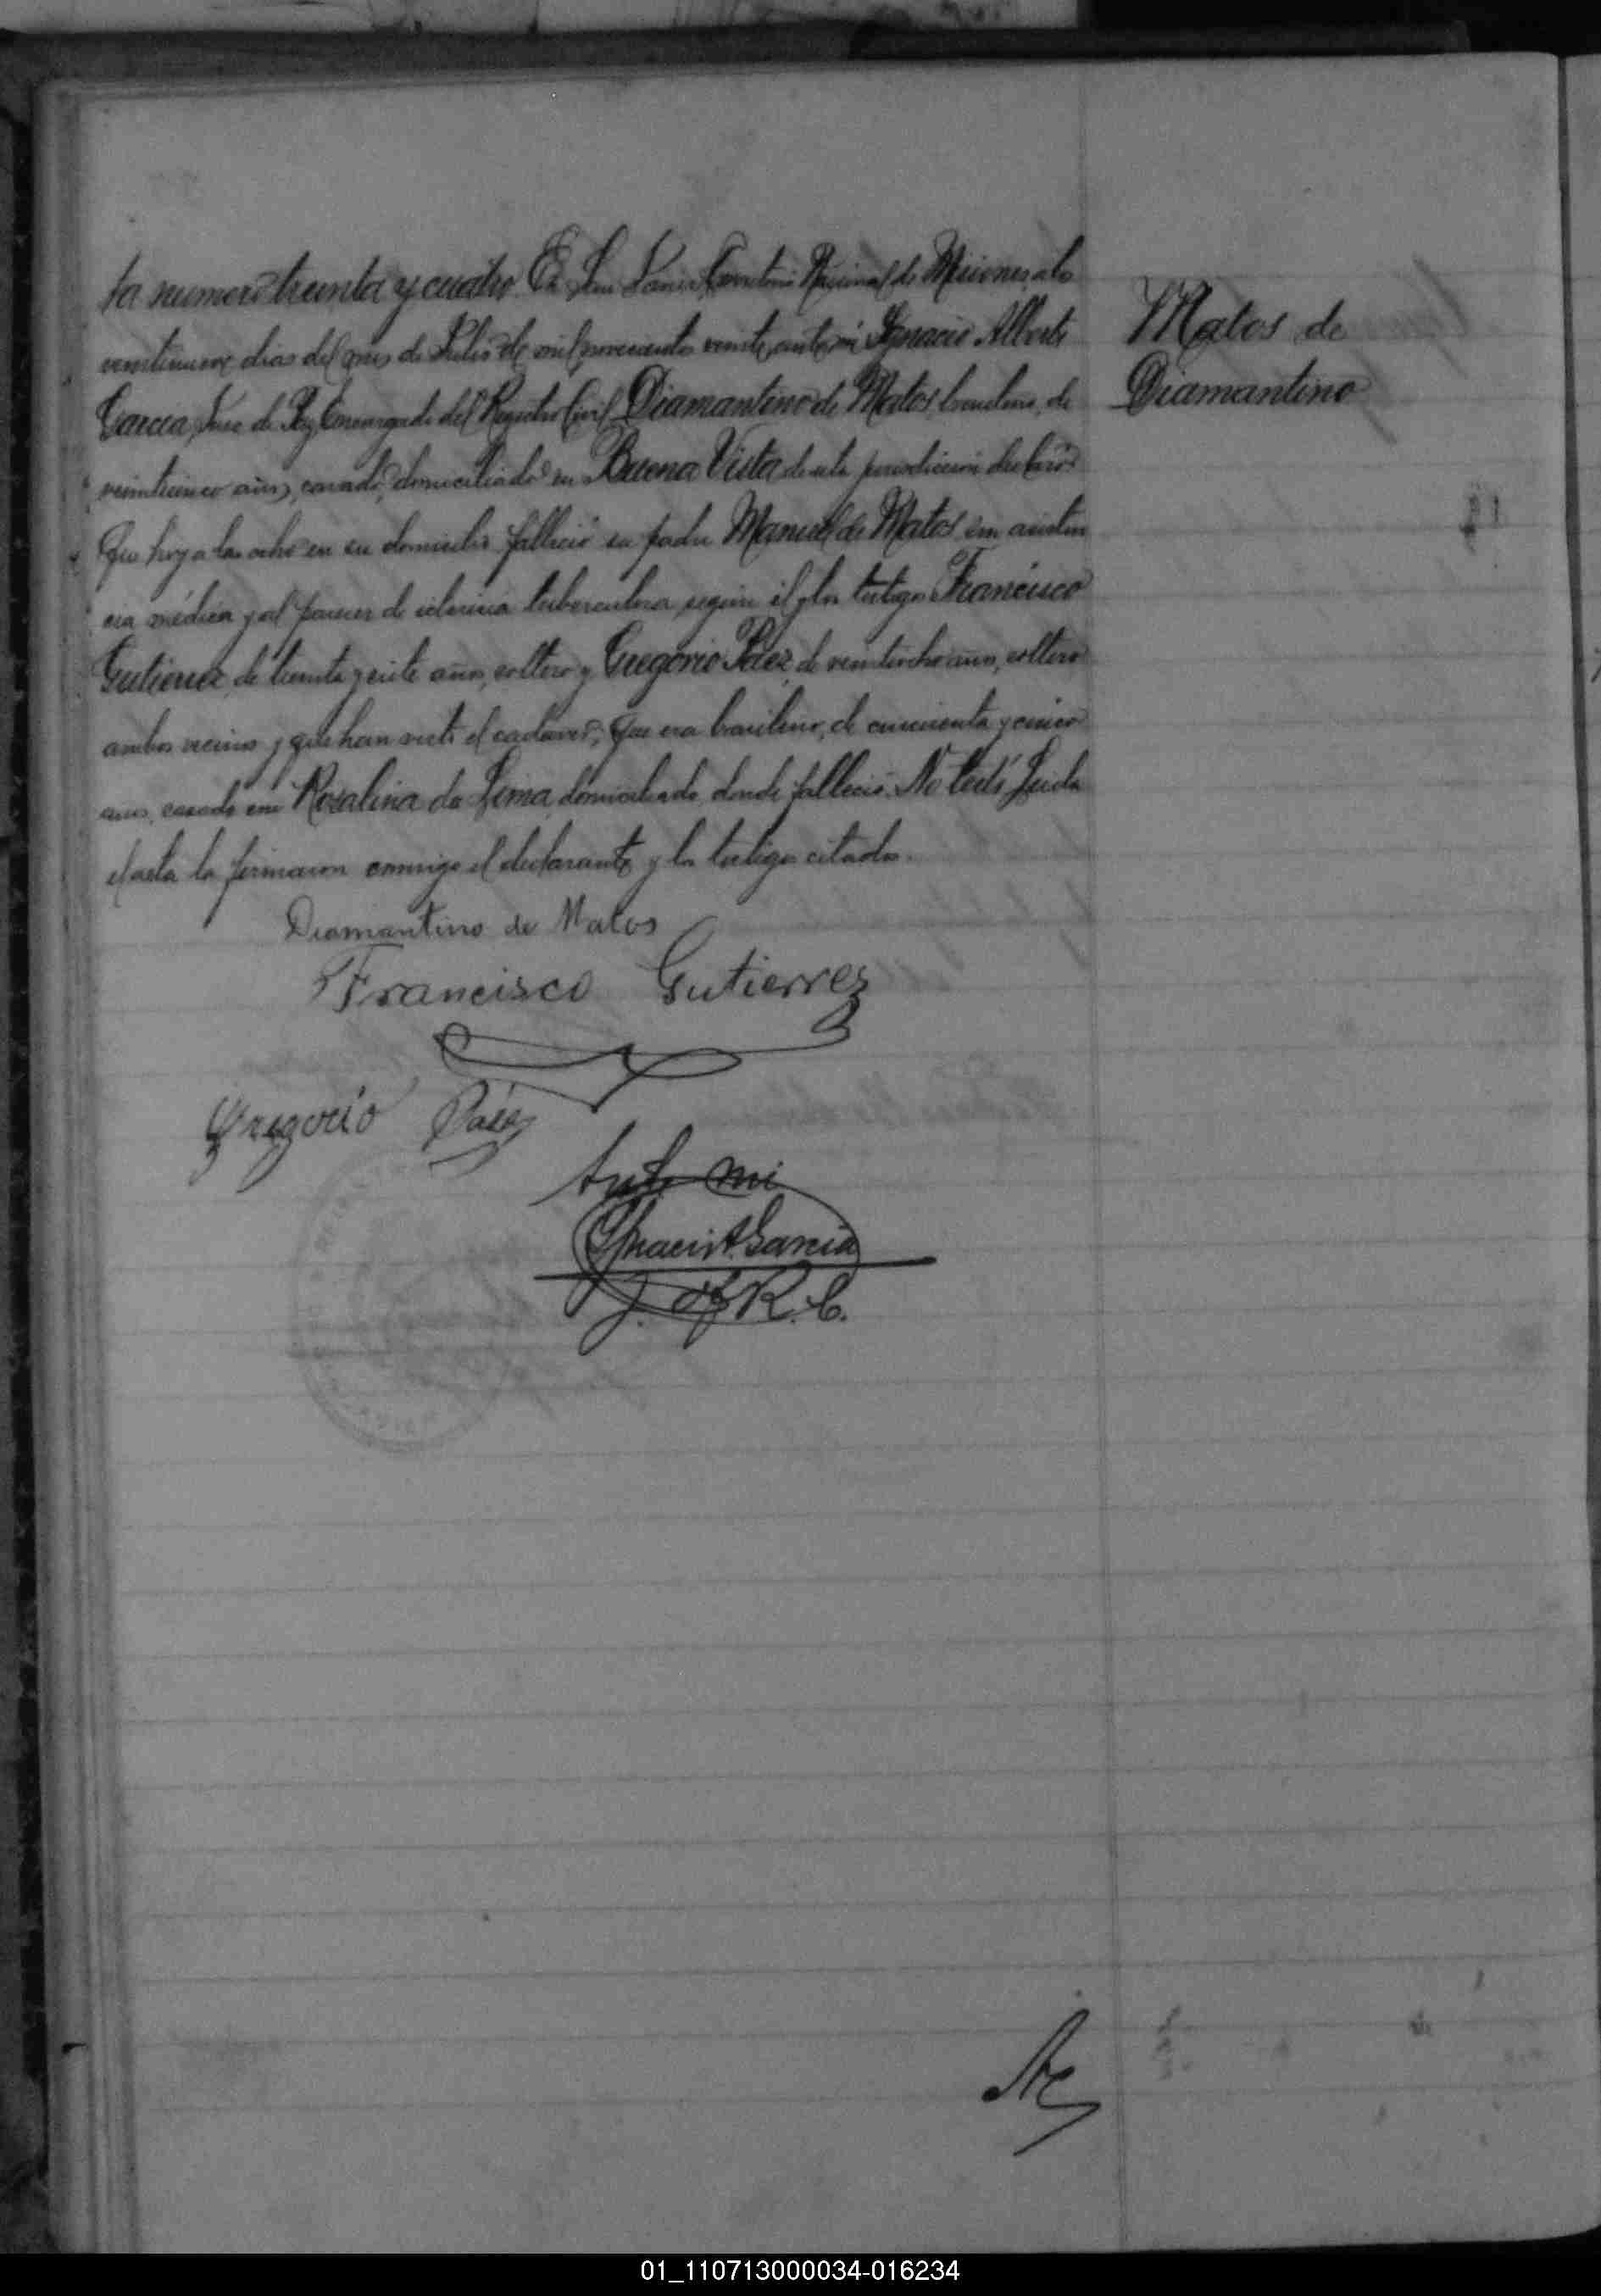 ta numero treinta y cuatro. En San Javier, Territorio Nacional de Misiones, a los
veintinueve dias del mes de Julio de mil novecientos veinte, ante mi Ignacio Alberto
Garcia, Juez de Paz Encargado del Registro Civil, Diamantino de Matos, brasilero, de
veinticinco años, casado, domiciliado en Buena Vista de esta jurisdiccion declaró:
Que hoy a las ocho en su domicilio falleció su padre Manuel de Matos sin asisten
cia médica y al parecer de tuberculosa segun él y los testigos Francisco
Gutierrez, de treinta y siete años, soltero y Gregorio Páez, de veintiocho años, soltero
ambos vecinos y que han visto el cadaver; Que era brasilero, de cincuenta y cinco
años, casado con Rosalina de Lima, domiciliado donde falleció. No testó. Leida
el acta la firmaron conmigo el declarante y los testigos citados.
Diamantino de Matos
Francisco Gutierrez
Gregorio Páez
Ante mi
Ignacio A. Garcia
J. R. C.
Matos de
Diamantino
01_110713000034-016234